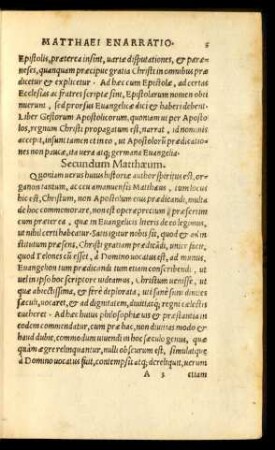 MATTHAEI ENARRATIO. 5
Epistolis, præterea insint, variæ disputationes, & paræ-
neses, quanquam præcipue gratia Christi in omnibus præ
dicetur & explicetur. Ad hæc cum Epistolæ, ad certas
Ecclesias ac fratres scriptæ sint, Epistolarum nomen obti
nuerunt, sed prorsus Euangelicæ dici & haberi debent.
Liber Gestorum Apostolicorum, quoniam ut per Aposto
los, regnum Christi propagatum est, narrat, id nominis
accepit, insunt tamen et in eo, ut Apostolorū prædicatio-
nes non paucæ, ita vera atq; germana Euangelia.
Secundum Matthæum.
Quoniam verus huius historiæ author spiritus est, or-
ganon tantum, ac ceu amanuensis Matthæus, tum locus
hic est, Christum, non Apostolum eius prædicandi, multa
de hoc commemorare, non est operæprecium: præserim
cum præterea, quæ in Euangelicis literis de eo legimus,
ut nihil certi habeatur. Satis igitur nobis sit, quod & ad in
stitutum præsens, Christi gratiam prædicādi, unice facit,
quod Telones cū esset, à Domino vocatus est, ad munus,
Euangelion tum prædicandi tum etiam conscribendi, ut
vel in ipso hoc scriptore videamus, Christum venisse, ut
quæ abiectissima, & ferè deplorata, uti sanè sunt divites
sæculi, vocaret, & ad dignitatem, divitiasq; regni cælestis
eueheret. Ad hæc huius philosophiæ vis & præstantia in
eodem commendatur, cum præ hac, non divitias modo &
haud dubie, commodum vivendi in hoc sæculo genus, quæ
quàm ægre relinquantur, nulli obscurum est, simulatque
à Domino vocatus fuit, contempsit atq; dereliquit, verum
A 3 etiam